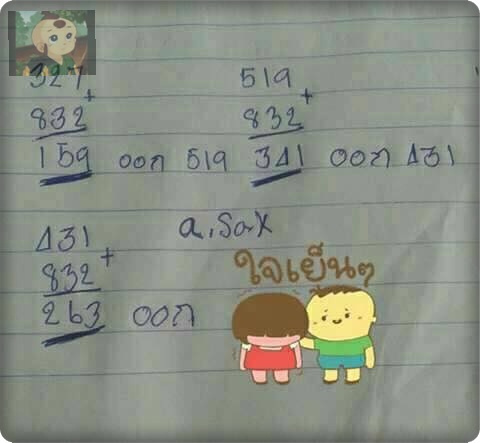 327 519
832 + 832 +
159 ออก 519 341 ออก 431
431 a. Sax
832 +
263 ออก
ใจเย็นๆ